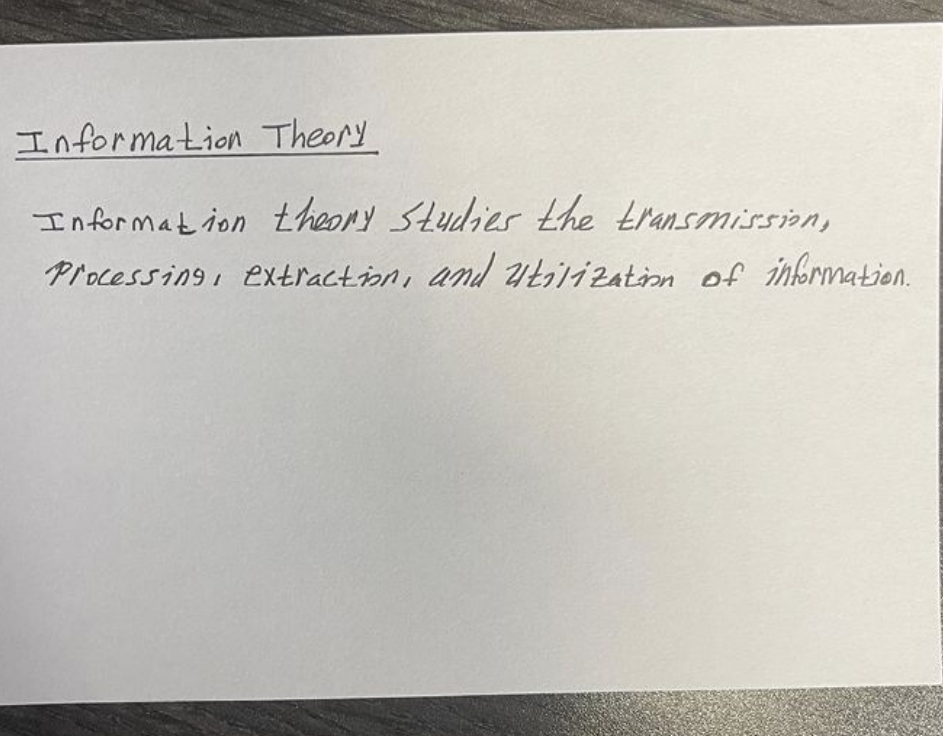 Information Theory
Information theory studies the transmission,
Processing, extraction, and utilization of information.